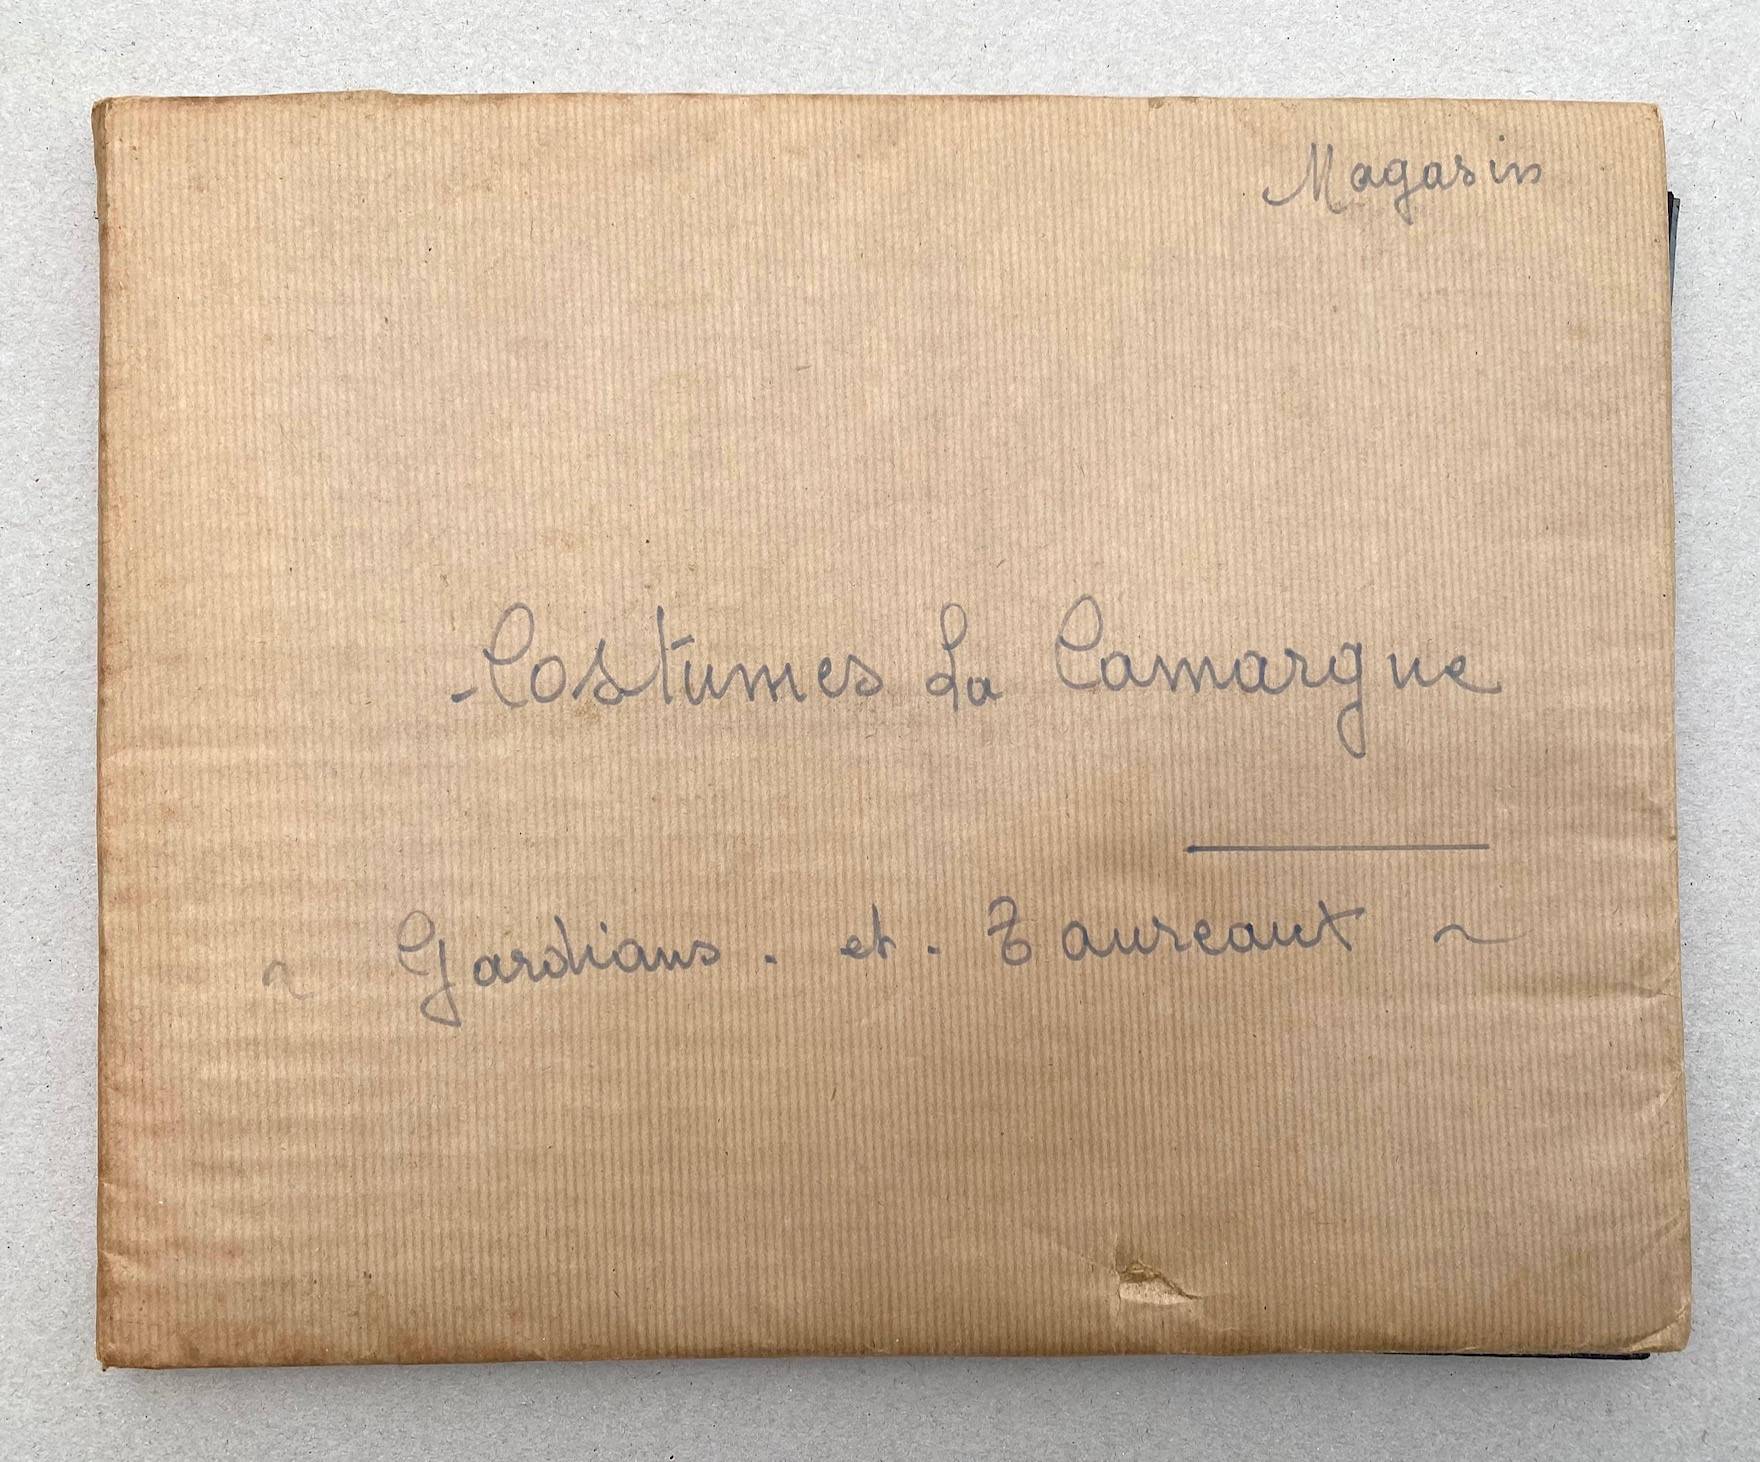 Magasin
- Costumes La Camargue
~ Gardians . et . Taureaux ~